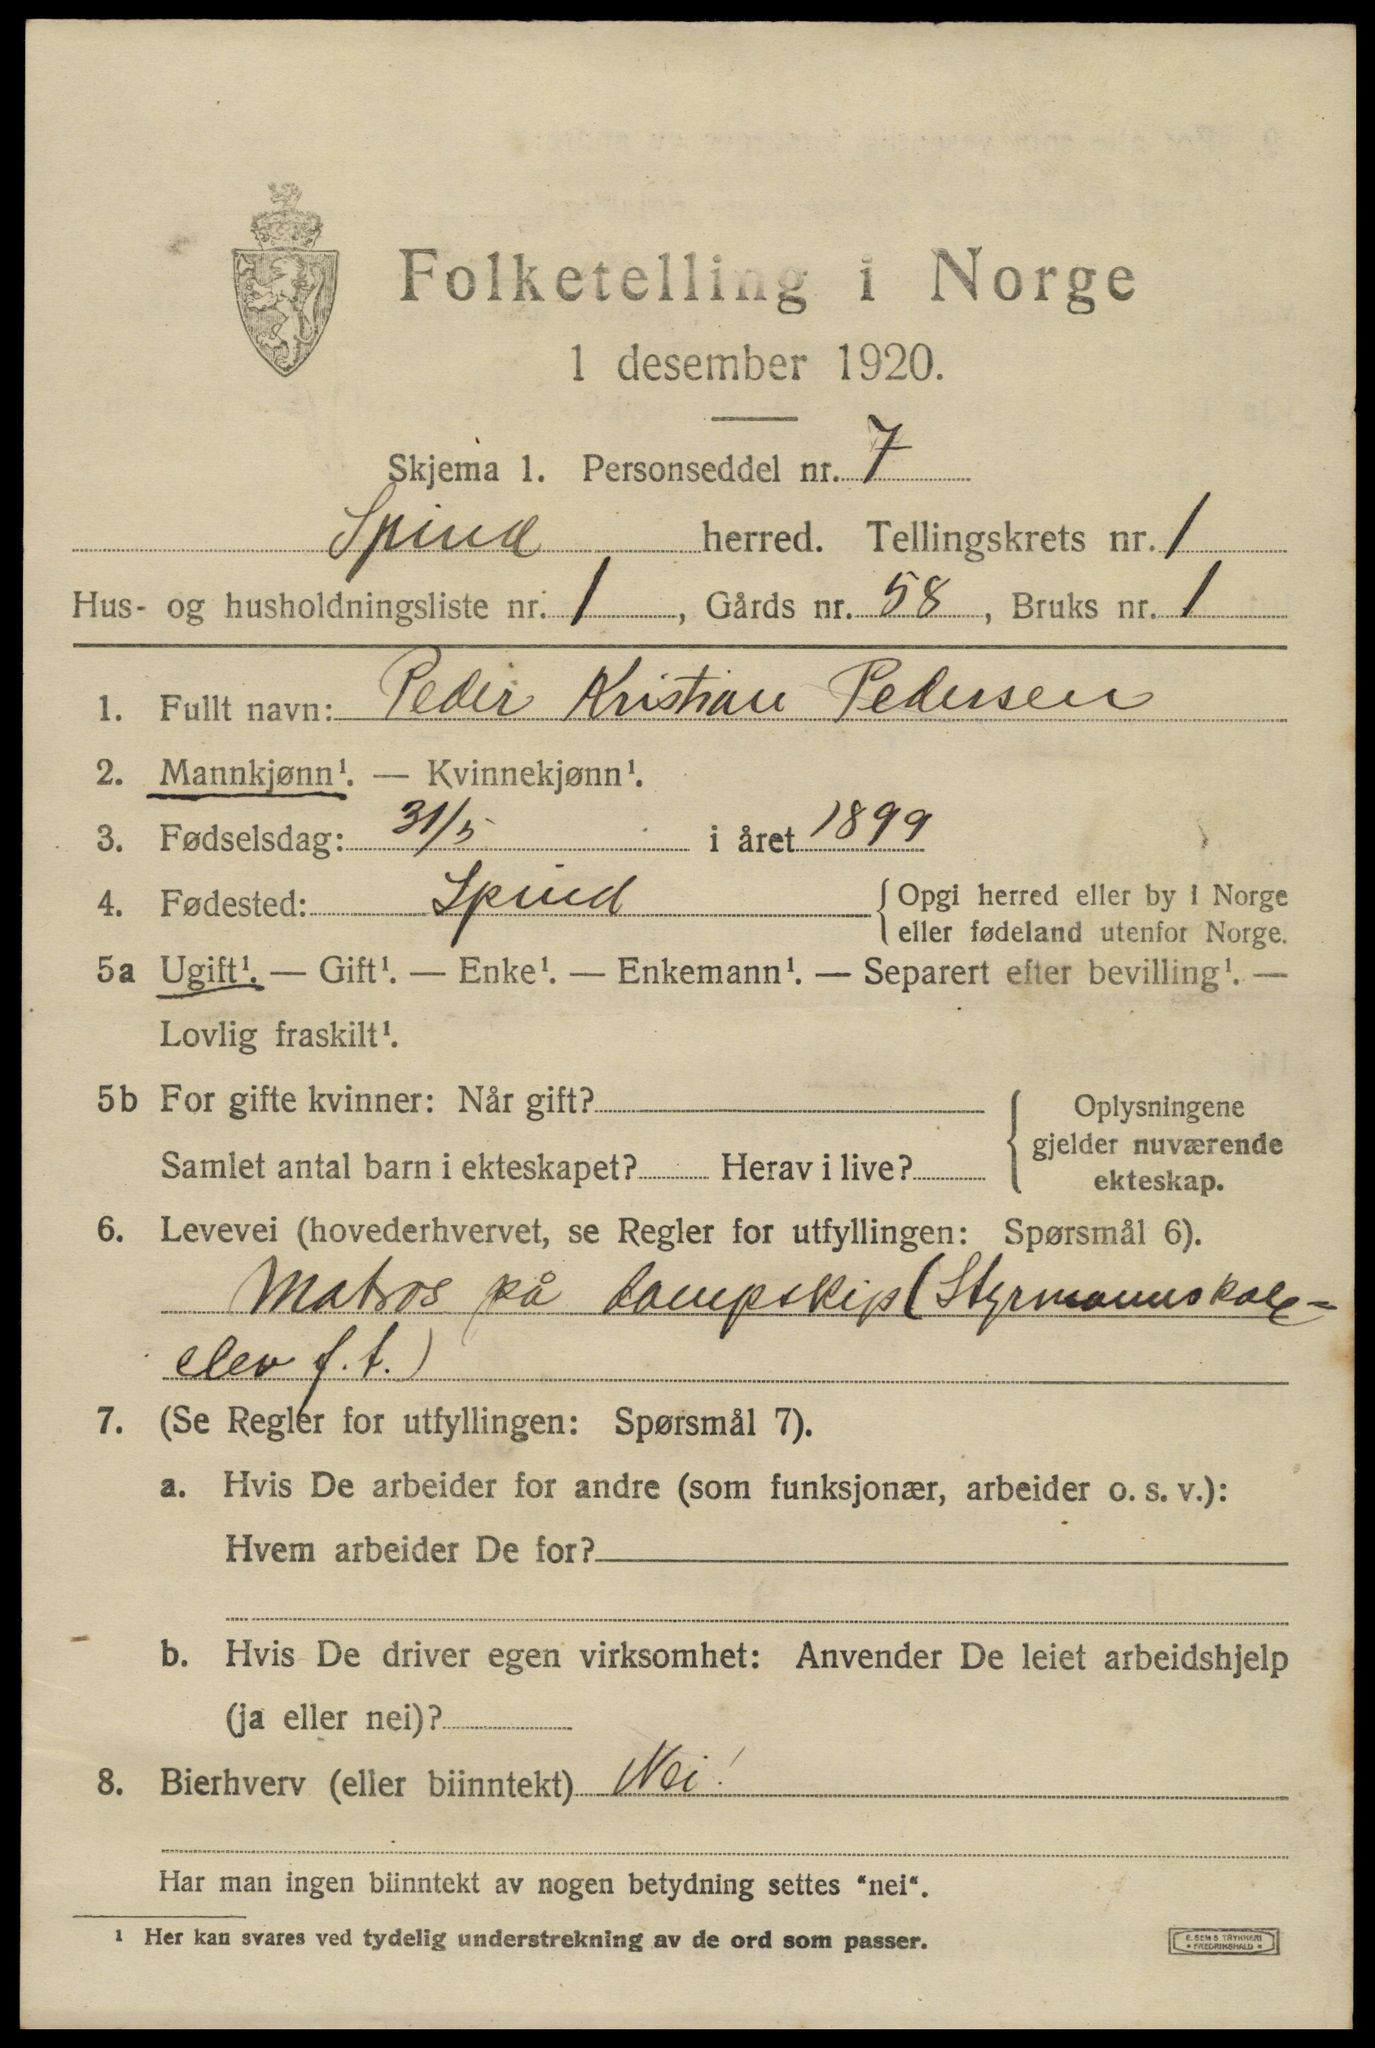 Folketelling i Norge
1 desember 1920.
Skjema 1. Personseddel nr. 7
Spind herred. Tellingskrets nr. 1
Hus- og husholdningsliste nr. 1, Gårds nr. 58, Bruks nr. 1
1. Fullt navn: Peder Kristian Pedersen
2. Mannkjønn¹. — Kvinnekjønn¹.
3. Fødselsdag: 31/5 i året 1899
4. Fødested: Spind { Opgi herred eller by i Norge
eller fødeland utenfor Norge.
5a Ugift¹. — Gift¹. — Enke¹. — Enkemann¹. — Separert efter bevilling¹. —
Lovlig fraskilt¹.
5b For gifte kvinner: Når gift?
Samlet antal barn i ekteskapet? Herav i live?
{ Oplysningene
gjelder nuværende
ekteskap.
6. Levevei (hovederhvervet, se Regler for utfyllingen: Spørsmål 6).
Matros på dampskip (Styrmannskole-
elev f. t.)
7. (Se Regler for utfyllingen: Spørsmål 7).
a. Hvis De arbeider for andre (som funksjonær, arbeider o. s. v.):
Hvem arbeider De for?
b. Hvis De driver egen virksomhet: Anvender De leiet arbeidshjelp
(ja eller nei)?
8. Bierhverv (eller biinntekt) Nei!
Har man ingen biinntekt av nogen betydning settes "nei".
¹ Her kan svares ved tydelig understrekning av de ord som passer.
E. SEMS TRYKKERI
• FREDRIKSHALD •